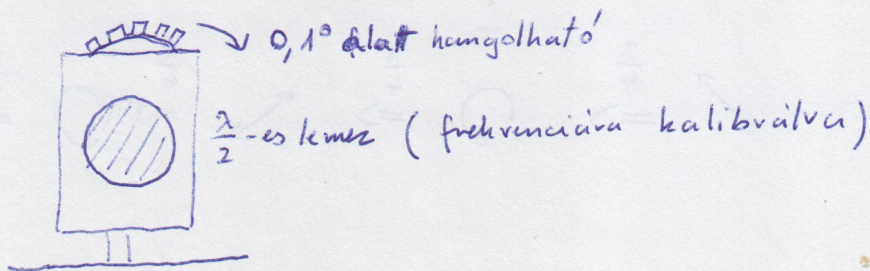 0,1° alatt hangolható
λ/2-es lemez (frekvenciára kalibrálva)